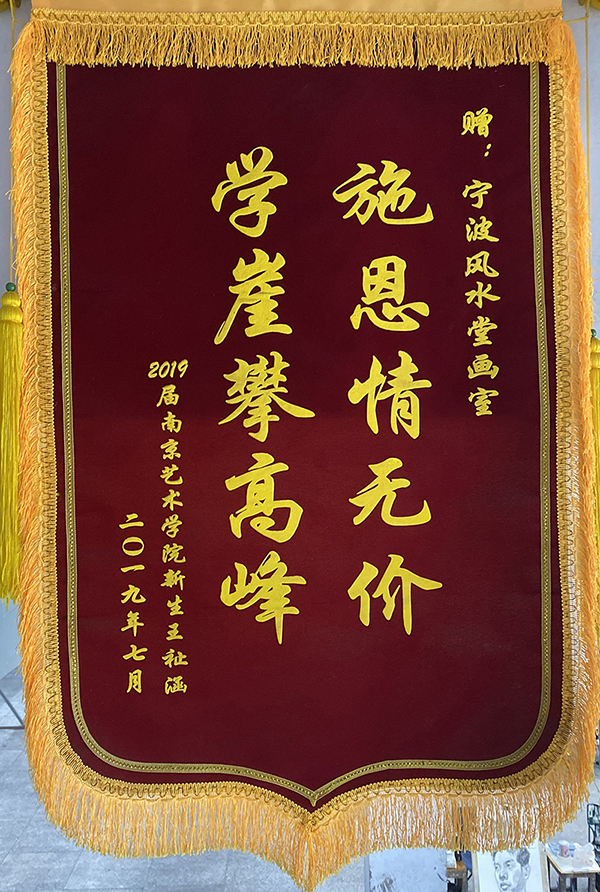 赠：宁波风水堂画室
施恩情无价
学崖攀高峰
2019届南京艺术学院新生王祉涵
二〇一九年七月